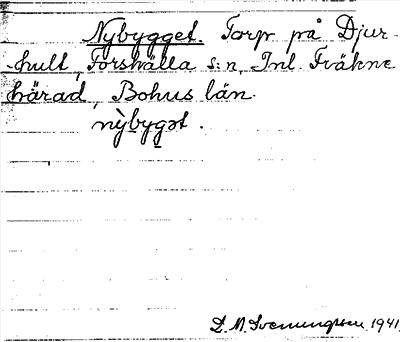 Nybygget. Torp på Djur-
hult, Forshälla s:n, Inl. Fräkne
härad, Bohus län.
nỳbygət.
D. A. Svenungsson 1941